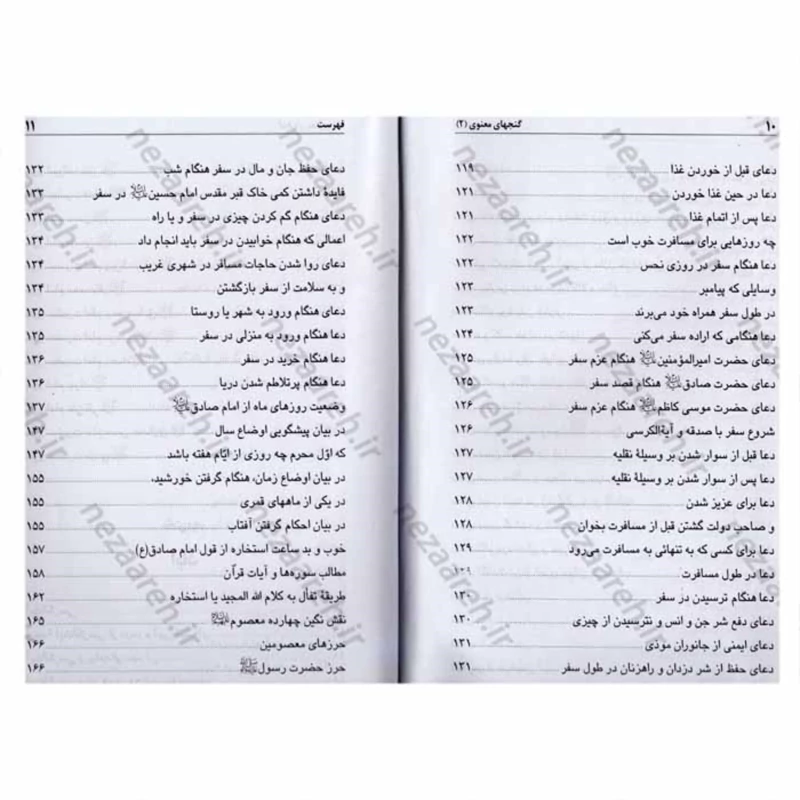 ۱۰ گنجهای معنوی (۲)
دعای قبل از خوردن غذا ۱۱۹
دعا در حین غذا خوردن ۱۲۱
دعا پس از اتمام غذا ۱۲۱
چه روزهایی برای مسافرت خوب است ۱۲۲
دعا هنگام سفر در روزی نحس ۱۲۲
وسایلی که پیامبر ۱۲۳
در طول سفر همراه خود می‌برند ۱۲۳
دعا هنگامی که اراده سفر می‌کنی ۱۲۴
دعای حضرت امیرالمؤمنین هنگام عزم سفر ۱۲۵
دعای حضرت صادق هنگام قصد سفر ۱۲۵
دعای حضرت موسی کاظم هنگام عزم سفر ۱۲۶
شروع سفر با صدقه و آیةالکرسی ۱۲۶
دعا قبل از سوار شدن بر وسیلهٔ نقلیه ۱۲۷
دعا پس از سوار شدن بر وسیلهٔ نقلیه ۱۲۷
دعا برای عزیز شدن ۱۲۸
و صاحب دولت گشتن قبل از مسافرت بخوان ۱۲۸
دعا برای کسی که به تنهائی به مسافرت می‌رود ۱۲۹
دعا در طول مسافرت ۱۲۹
دعا هنگام ترسیدن در سفر ۱۳۰
دعای دفع شر جن و انس و نترسیدن از چیزی ۱۳۰
دعای ایمنی از جانوران موذی ۱۳۱
دعای حفظ از شر دزدان و راهزنان در طول سفر ۱۳۱
فهرست ۱۱
دعای حفظ جان و مال در سفر هنگام شب ۱۳۲
فایدهٔ داشتن کمی خاک قبر مقدس امام حسین در سفر ۱۳۳
دعای هنگام گم کردن چیزی در سفر و یا راه ۱۳۳
اعمالی که هنگام خوابیدن در سفر باید انجام داد ۱۳۴
دعای روا شدن حاجات مسافر در شهری غریب ۱۳۴
و به سلامت از سفر بازگشتن ۱۳۴
دعای هنگام ورود به شهر یا روستا ۱۳۵
دعا هنگام ورود به منزلی در سفر ۱۳۵
دعا هنگام خرید در سفر ۱۳۶
دعا هنگام پرتلاطم شدن دریا ۱۳۶
وضعیت روزهای ماه از امام صادق ۱۳۷
در بیان پیشگویی اوضاع سال ۱۴۷
که اوّل محرم چه روزی از ایّام هفته باشد ۱۴۷
در بیان اوضاع زمان، هنگام گرفتن خورشید، ۱۵۵
در یکی از ماههای قمری ۱۵۵
در بیان احکام گرفتن آفتاب ۱۵۵
خوب و بد ساعت استخاره از قول امام صادق(ع) ۱۵۷
مطالب سوره‌ها و آیات قرآن ۱۵۸
طریقهٔ تفأل به کلام الله المجید یا استخاره ۱۶۲
نقش نگین چهارده معصوم ۱۶۵
حرزهای معصومین ۱۶۶
حرز حضرت رسول ۱۶۶
nezaareh.ir